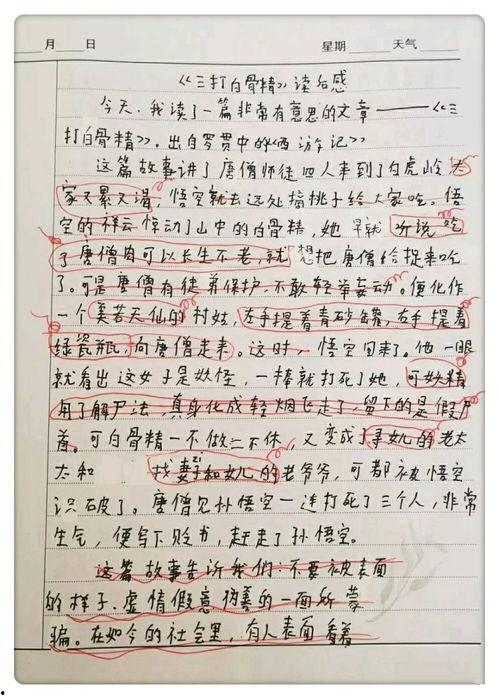 月 日 星期 天气
《三打白骨精》读后感
今天,我读了一篇非常有意思的文章——《三
打白骨精》。出自罗贯中的《西游记》
这篇故事讲了唐僧师徒四人来到了白虎岭,大
家又累又渴,悟空就去远处摘桃子给大家吃。悟
空的祥云惊动了山中的白骨精,她早就听说吃
了唐僧肉可以长生不老,就想把唐僧给捉来吃
了。可是唐僧有徒弟保护,不敢轻举妄动。便化作
一个美若天仙的村姑,左手提着青砂罐,右手提着
绿瓷瓶,向唐僧走来。这时,悟空回来了。他一眼
就看出这女子是妖怪,一棒就打死了她,可妖精
用了解尸法,真身化成轻烟飞走了,留下的是假尸
首。可白骨精一不做二不休,又变成了寻女儿的老太
太和 找妻子和女儿的老爷爷,可都被悟空
识破了。唐僧见孙悟空一连打死了三个人,非常
生气,便写下贬书,赶走了孙悟空。
这篇故事告诉我们:不要被表面
的样子,虚情假意,伪善的一面所蒙
骗。在如今的社会里,有人表面看着